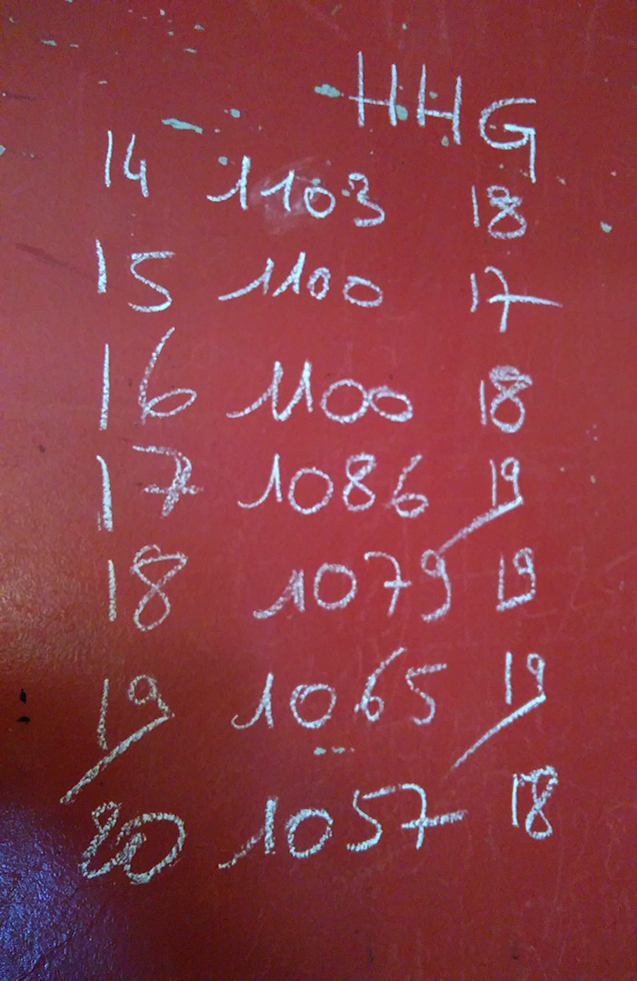 HHG
14 1103 18
15 1100 17
16 1100 18
17 1086 19
18 1079 19
19 1065 19
20 1057 18